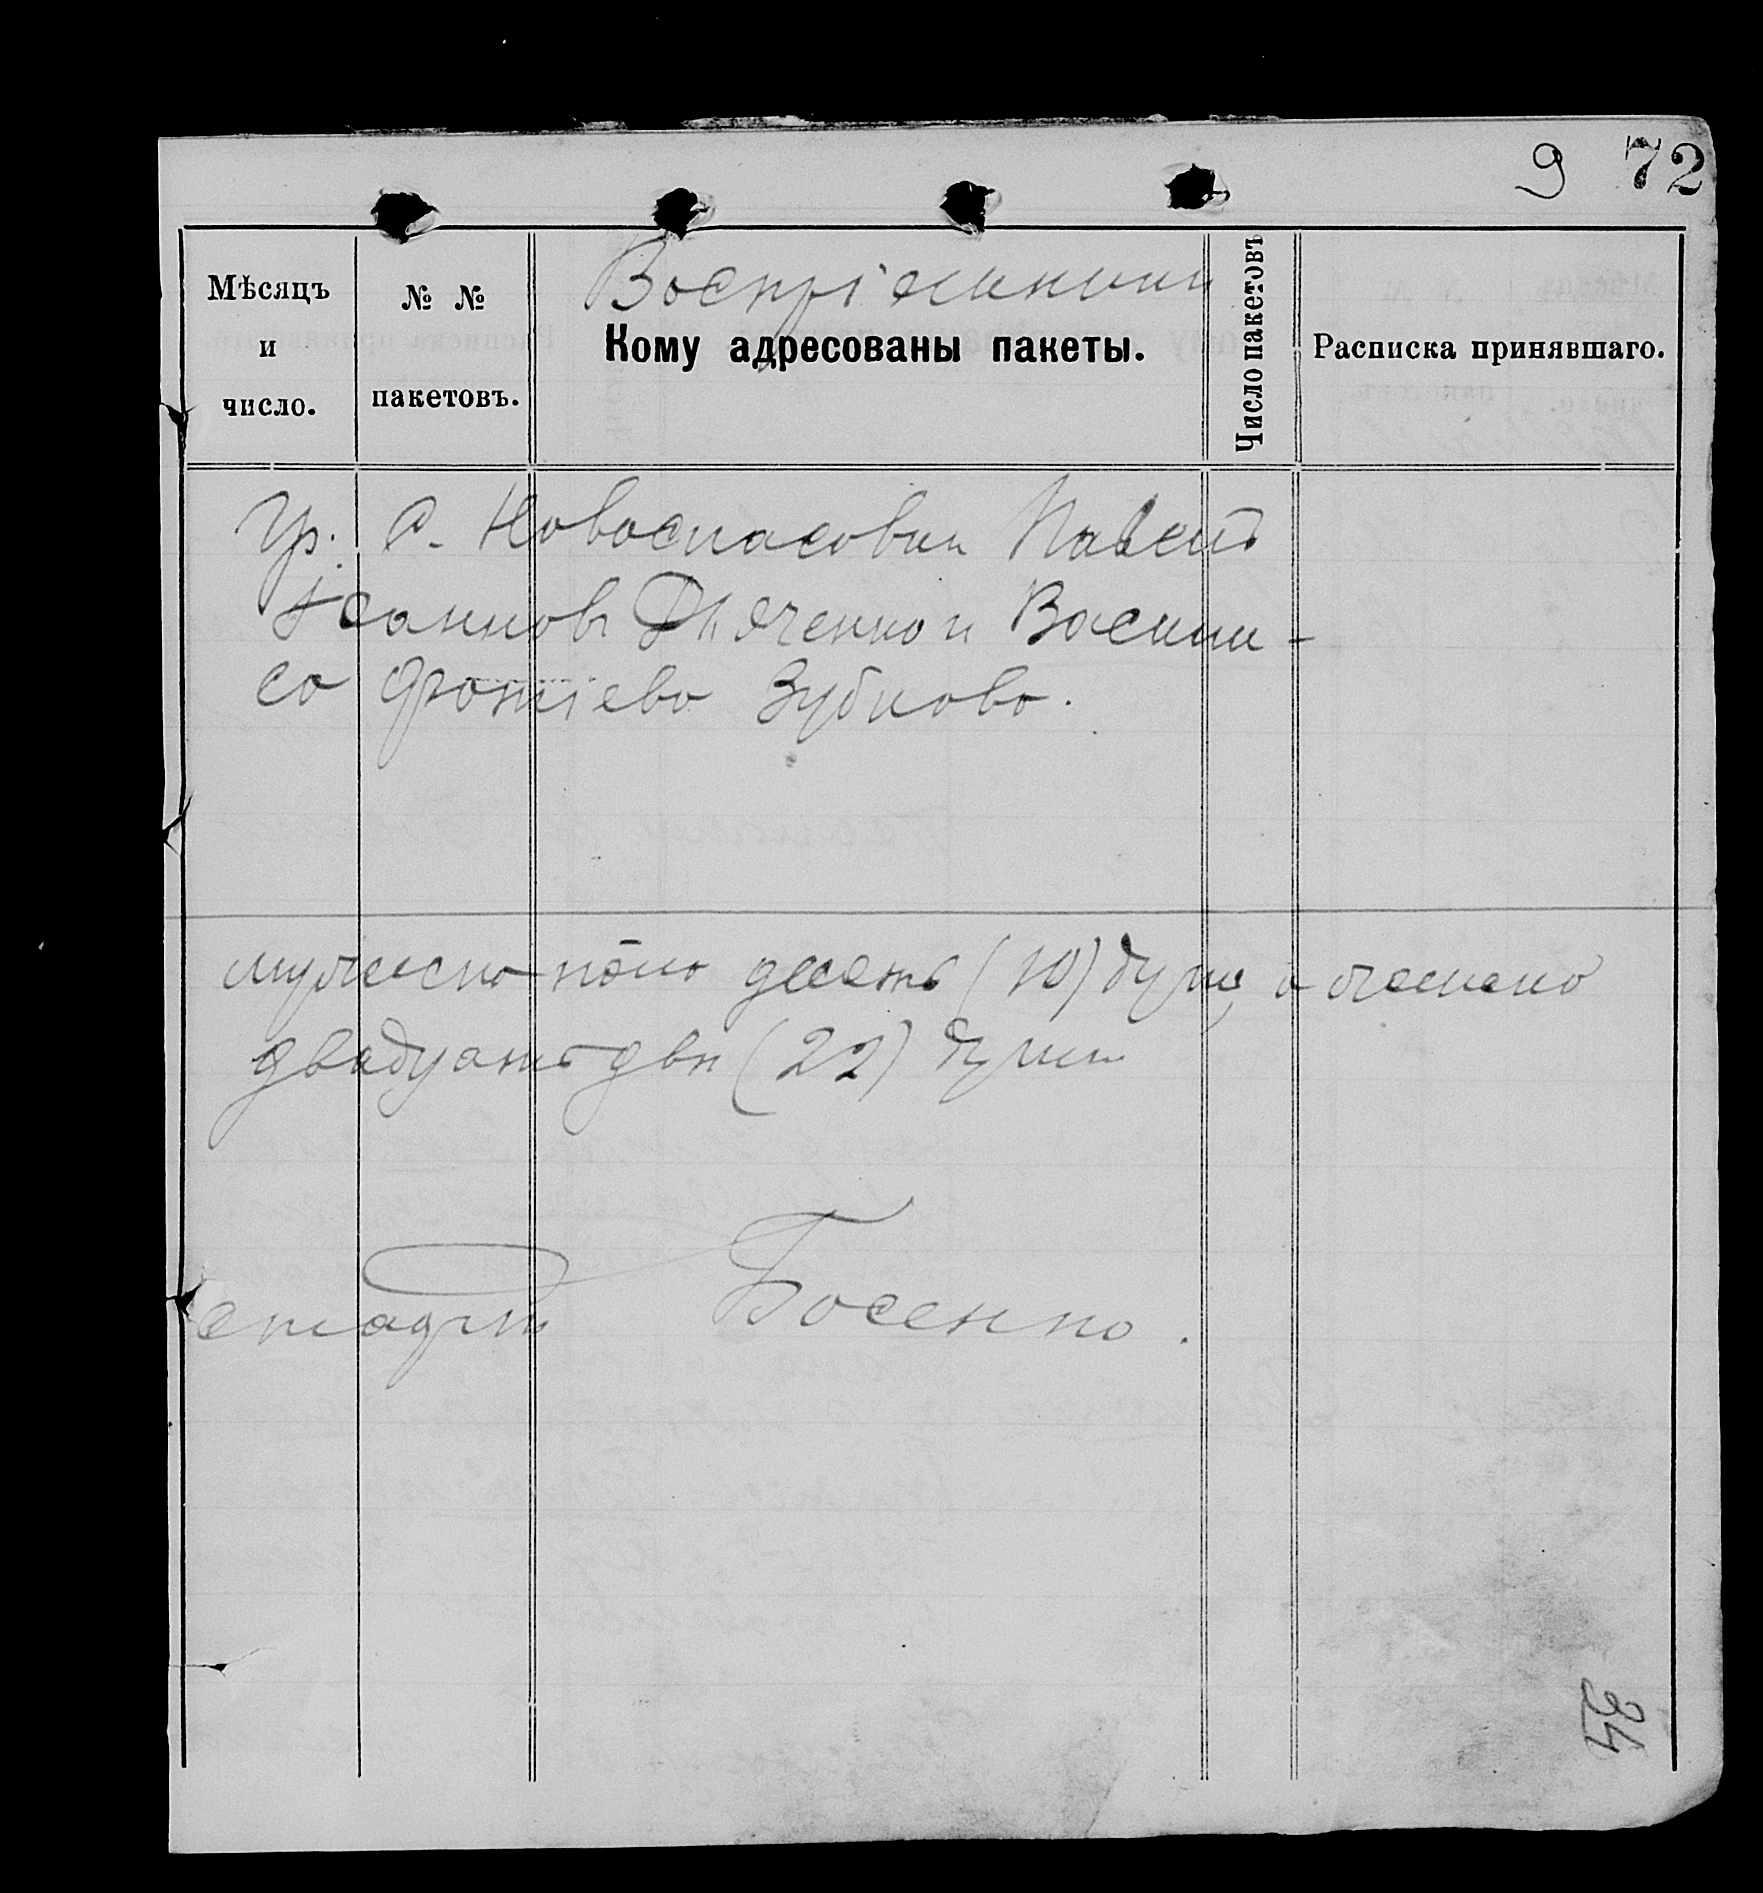 9 72
Мѣсяцъ и число.
№ № пакетовъ.
Воспріемники
Кому адресованы пакеты.
Число пакетовъ
Расписка принявшаго.
Гр. с. Новоспасовки Павелъ
Іоанновъ Дяченко и Васили-
са Фотіева Зубкова.
мужеско пола десять (10) душъ а женско
двадцать два (22) души
Босенко.
34